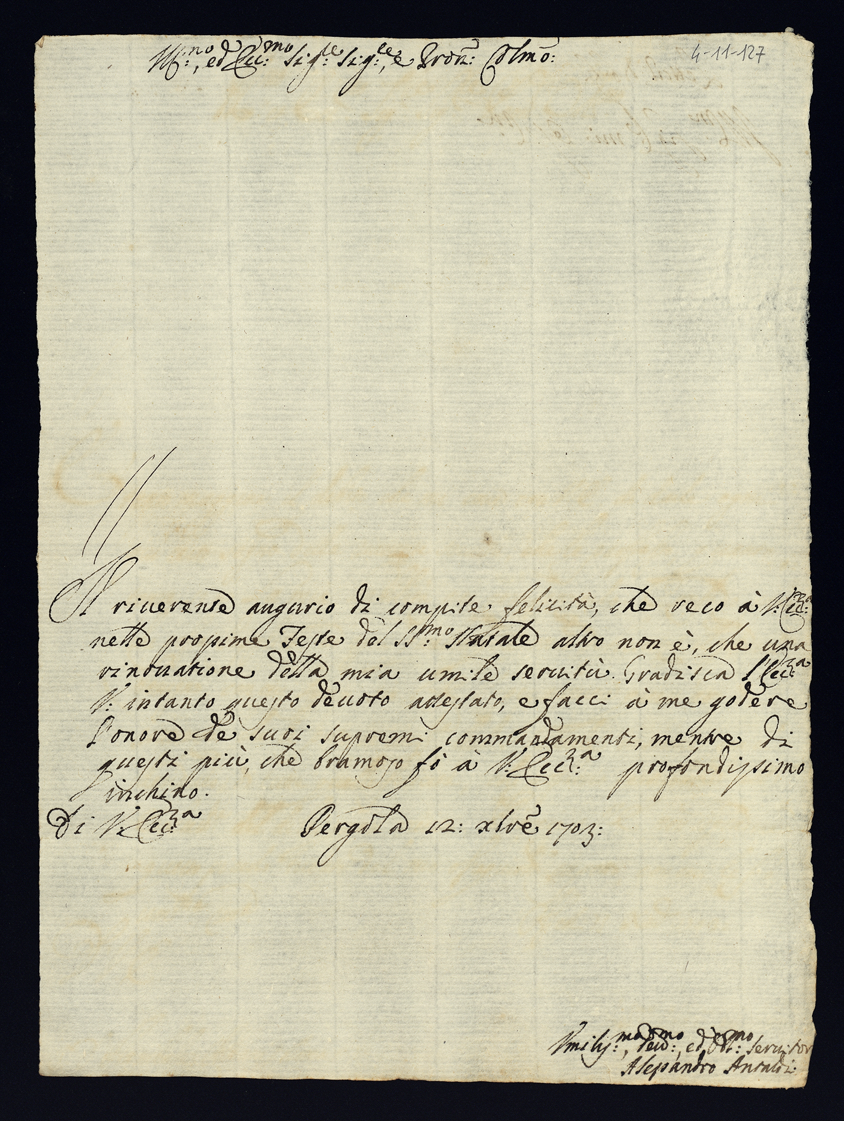 4-11-127
Ill:mo, ed Ecc:mo Sig:re Sig:re, e Pron: Colmo:
Il riverente augurio di compite felicità, che reco à V: Ecc:za
nelle prossime Feste del SS:mo Natale altro non è, che una
rinovatione della mia umile servitù. Gradisca l'Ecc:za
V: intanto questo devoto attestato, e facci à me godere
l'onore de suoi supremi commandamenti, mentre di
questi più, che bramoso fò à V: Ecc:za profondissimo
inchino.
Di V: Ecc:za Pergola 12: xbre 1703:
Umiliss:mo, Dev:mo, ed Obl:mo servitor
Alessandro Antaldi